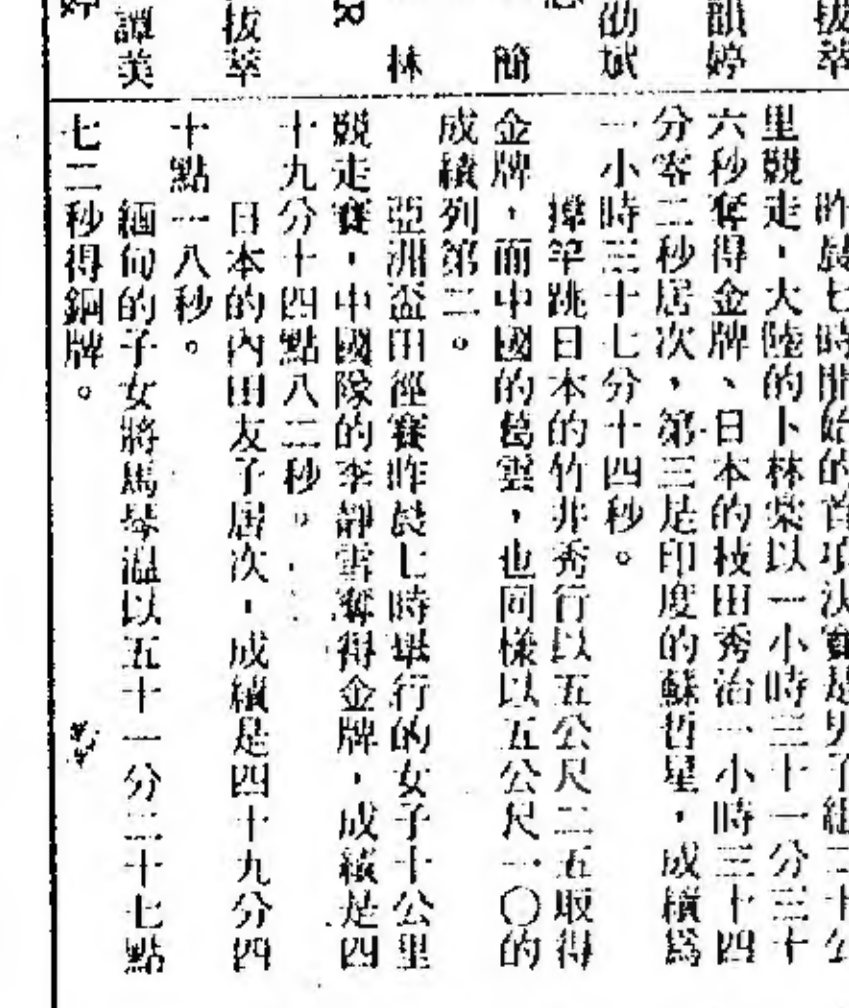 拔萃
韻婷
劭斌
簡
林
拔萃
譚美
婷
昨晨七時開始的首項決賽是男子組二十公
里競走，大陸的卜林榮以一小時三十一分三十
六秒奪得金牌、日本的枝田秀治一小時三十四
分零二秒居次，第三是印度的蘇哲星，成績為
一小時三十七分十四秒。
撐竿跳日本的竹井秀行以五公尺二五取得
金牌，而中國的葛雲，也同樣以五公尺一〇的
成績列第二。
亞洲盃田徑賽昨晨七時舉行的女子十公里
競走賽，中國隊的李靜雪奪得金牌，成績是四
十九分十四點八二秒。
日本的內田友子居次，成績是四十九分四
十點一八秒。
緬甸的子女將馬琴溫以五十一分二十七點
七二秒得銅牌。